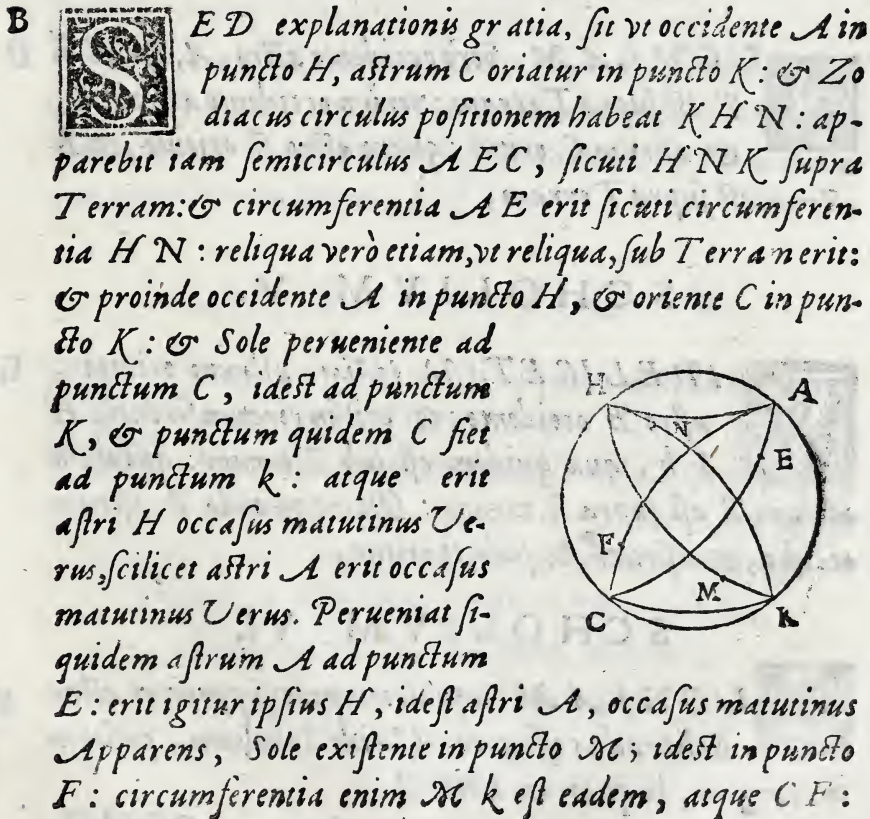 B
SED explanationis gratia, sit vt occidente A in
puncto H, astrum C oriatur in puncto K: & Zo
diacus circulus positionem habeat K H N: ap-
parebit iam semicirculus A E C, sicuti H N K supra
Terram: & circumferentia A E erit sicuti circumferen-
tia H N: reliqua verò etiam, vt reliqua, sub Terram erit:
& proinde occidente A in puncto H, & oriente C in pun-
cto K: & Sole perueniente ad
punctum C, idest ad punctum
K, & punctum quidem C fiet
ad punctum k: atque erit
astri H occasus matutinus Ve-
rus, scilicet astri A erit occasus
matutinus Verus. Perueniat si-
quidem astrum A ad punctum
E: erit igitur ipsius H, idest astri A, occasus matutinus
Apparens, Sole existente in puncto M; idest in puncto
F: circumferentia enim M k est eadem, atque C F:
H
A
N
E
F
M
C
K